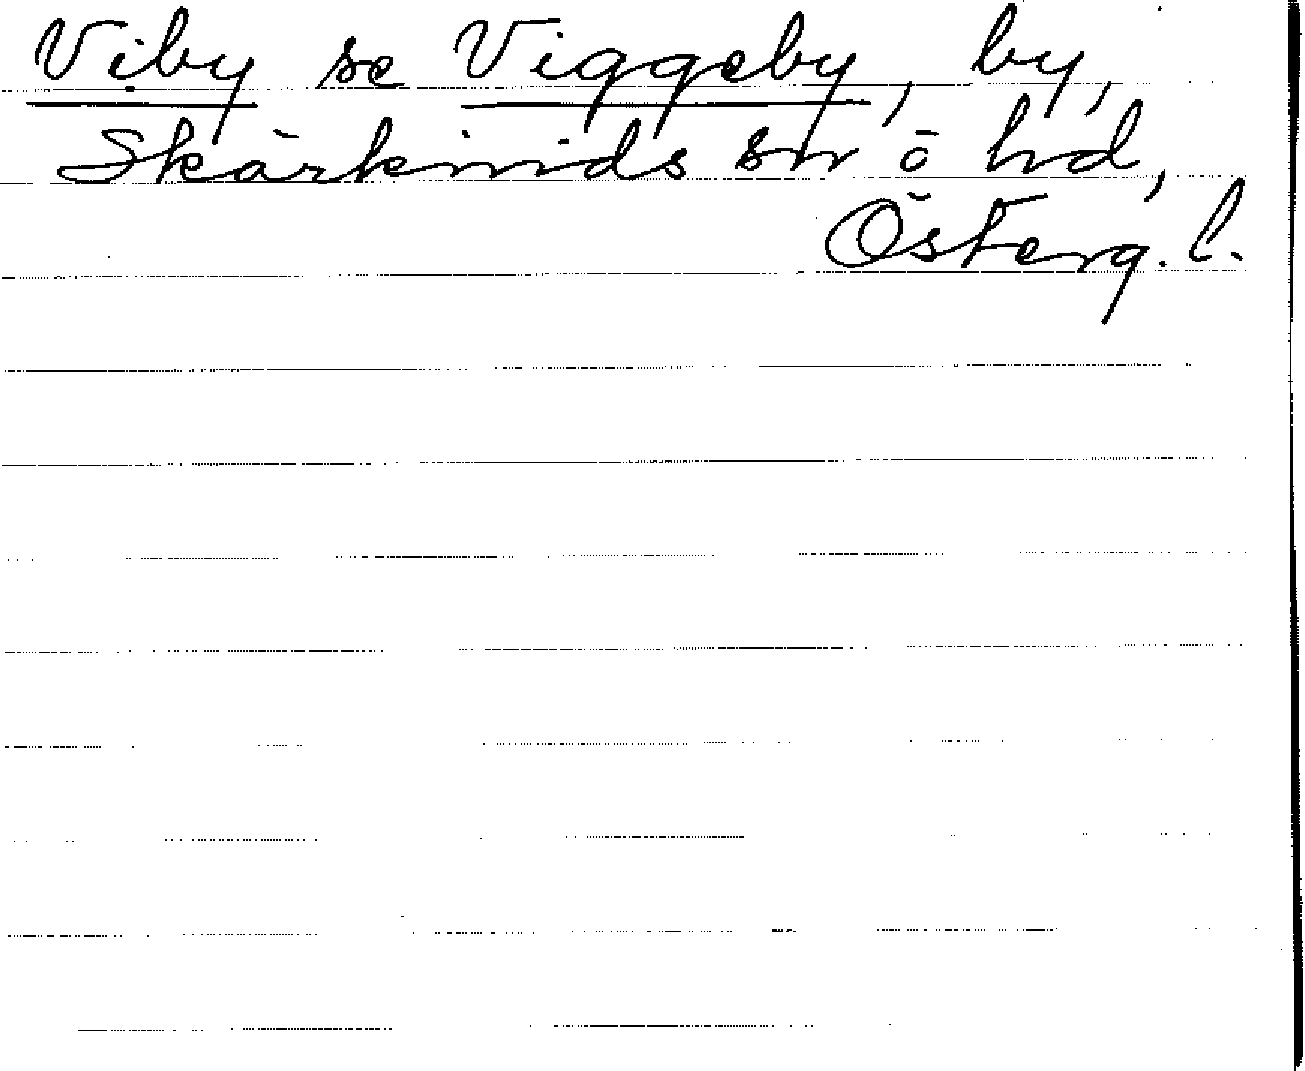 Viby se Viggeby, by,
Skärkinds sn o hd,
Österg. l.